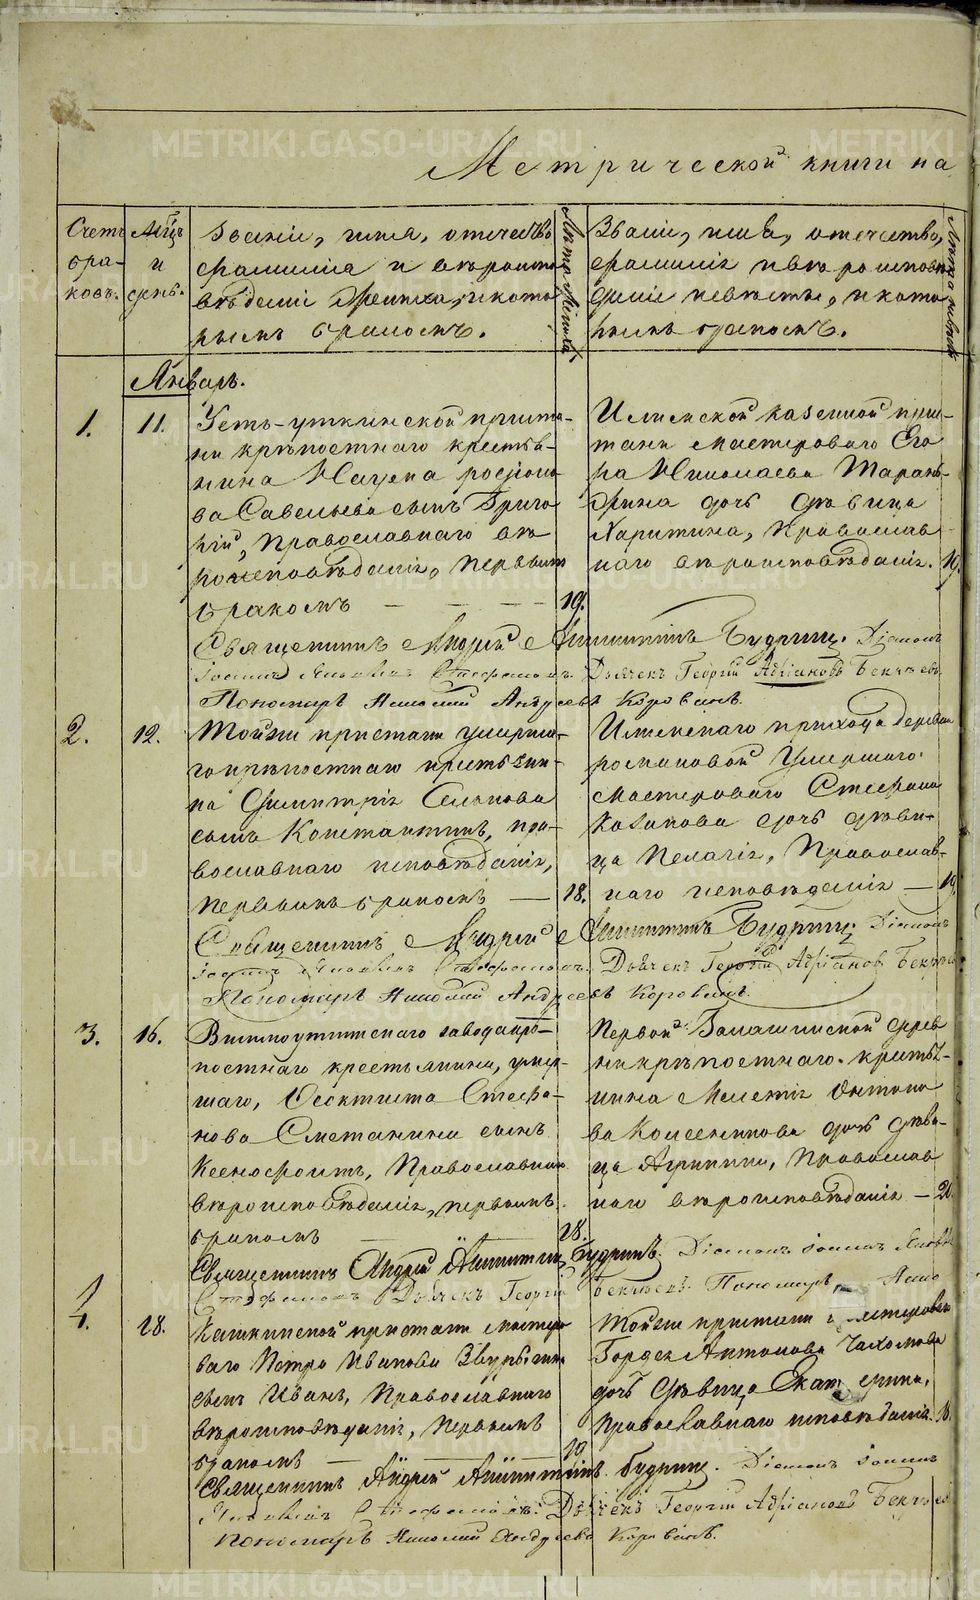 Метрической книги на
Счетъ
бра-
ковъ.
Мѣцъ
и
день.
Званіе, имя, отчество
фамилія и вѣроиспо
вѣданіе жениха, и кото
рымъ бракомъ.
Лѣта жениха
Званіе, имя, отчество,
фамилія и вѣроисповѣ
даніе невѣсты, и кото
рымъ бракомъ.
Лѣта невѣсты
Январь.
1.
11.
Усть-уткинской приста-
ни крѣпостнаго крестья-
нина
Савельева сынъ Григо
рій, Православнаго вѣ
роисповѣданія, первымъ
бракомъ
19.
Илимской казенной при-
стани мастероваго Его
ра Николаева Таран-
дочь дѣвица
Харитина, Православ
наго вѣроисповѣданія.
19.
Священникъ Андрей Будринъ. Діаконъ
Іоаннъ Яковлевъ Стефановъ. Дьячекъ Георгій Адріановъ
Пономарь Николай Андреевъ Коровинъ.
2.
12.
Тойже пристани умерша-
го крѣпостнаго крестьяни-
на Димитрія
сынъ Константинъ, пра-
вославнаго исповѣданія,
первымъ бракомъ
18.
Илимскаго прихода деревни
романовой Умершаго
мастероваго Стефана
Казакова дочь дѣви-
ца Пелагія, Православ-
наго исповѣданія
19.
Священникъ Андрей Будринъ. Діаконъ
Іоаннъ Яковлевъ Стефановъ. Дьячекъ Георгій Адріановъ
Пономарь Николай Андреевъ Коровинъ.
3.
16.
Висимоуткинскаго завода крѣ-
постнаго крестьянина, умер-
шаго, Ѳеоктиста Стефа-
нова Сметанина сынъ
Ксенофонтъ, Православнаго
вѣроисповѣданія, первымъ
бракомъ
18.
Первой дерев
ни крѣпостнаго крестья-
нина Мелетія Антоно
ва дочь дѣви-
ца Агрипина, Православ
наго вѣроисповѣданія
Священникъ Андрей Будринъ. Діаконъ Іоаннъ Яковлевъ
Стефановъ Дьячекъ Георгій Пономарь
4.
18.
Кашкинской пристани мастеро
ваго Петра Иванова
сынъ Иванъ, Православнаго
вѣроисповѣданія, первымъ
бракомъ
19
Тойже пристани мастероваго
Гордея Антонова
дочь дѣвица Екатерина,
Православнаго исповѣданія.
18.
Священникъ Андрей Будринъ. Діаконъ Іоаннъ
Яковлевъ Стефановъ. Дьячекъ Георгій Адріановъ
Пономарь Николай Андреевъ Коровинъ.
METRIKI.GASO-URAL.RU